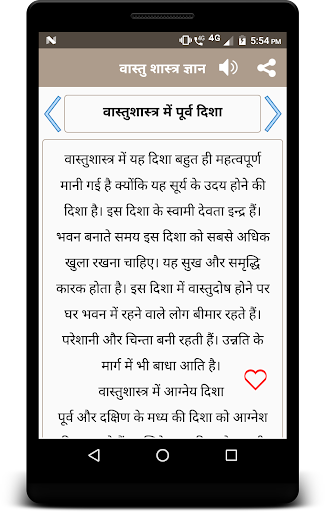 4G 4G 5:54 PM
वास्तु शास्त्र ज्ञान
वास्तुशास्त्र में पूर्व दिशा
वास्तुशास्त्र में यह दिशा बहुत ही महत्वपूर्ण
मानी गई है क्योंकि यह सूर्य के उदय होने की
दिशा है। इस दिशा के स्वामी देवता इन्द्र हैं।
भवन बनाते समय इस दिशा को सबसे अधिक
खुला रखना चाहिए। यह सुख और समृद्धि
कारक होता है। इस दिशा में वास्तुदोष होने पर
घर भवन में रहने वाले लोग बीमार रहते हैं।
परेशानी और चिन्ता बनी रहती हैं। उन्नति के
मार्ग में भी बाधा आति है।
वास्तुशास्त्र में आग्नेय दिशा
पूर्व और दक्षिण के मध्य की दिशा को आग्नेश